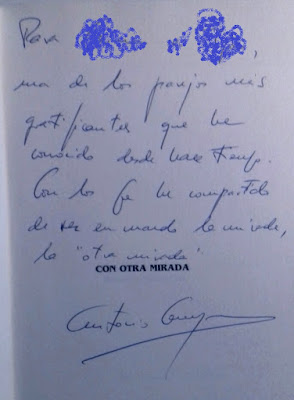 Para
una de las parejas más
gratificantes que he
conocido desde hace tiempo.
Con los que he compartido
de vez en cuando la mirada,
la "otra mirada"
CON OTRA MIRADA
Antonio